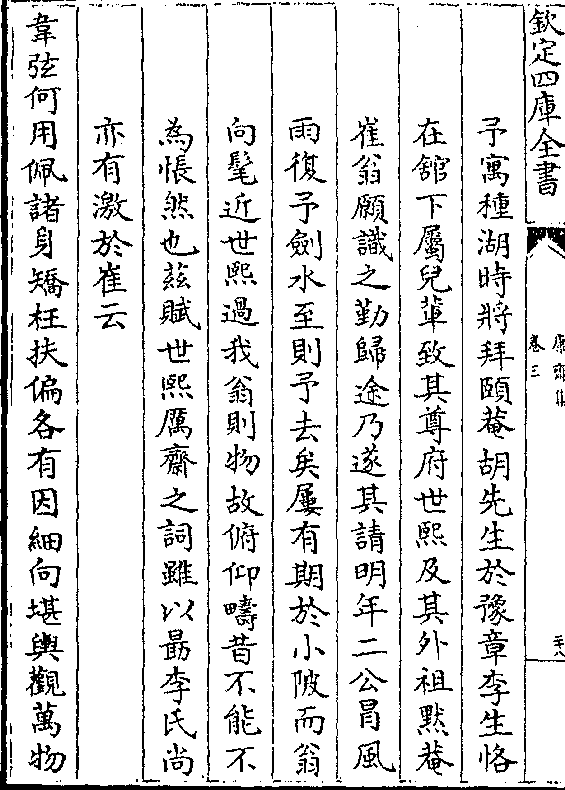 欽定四庫全書
卷三
予寓種湖時將拜頤菴胡先生於豫章李生恪
在舘下屬兒軰致其尊府世熙及其外祖黙菴
崔翁願識之勤歸途乃遂其請明年二公冒風
雨復予劍水至則予去矣屢有期於小陂而翁
向髦近世熙過我翁則物故俯仰疇昔不能不
為悵然也兹賦世熙厲齋之詞雖以勗李氏尚
亦有激於崔云
韋弦何用佩諸身矯枉扶偏各有因細向堪輿觀萬物